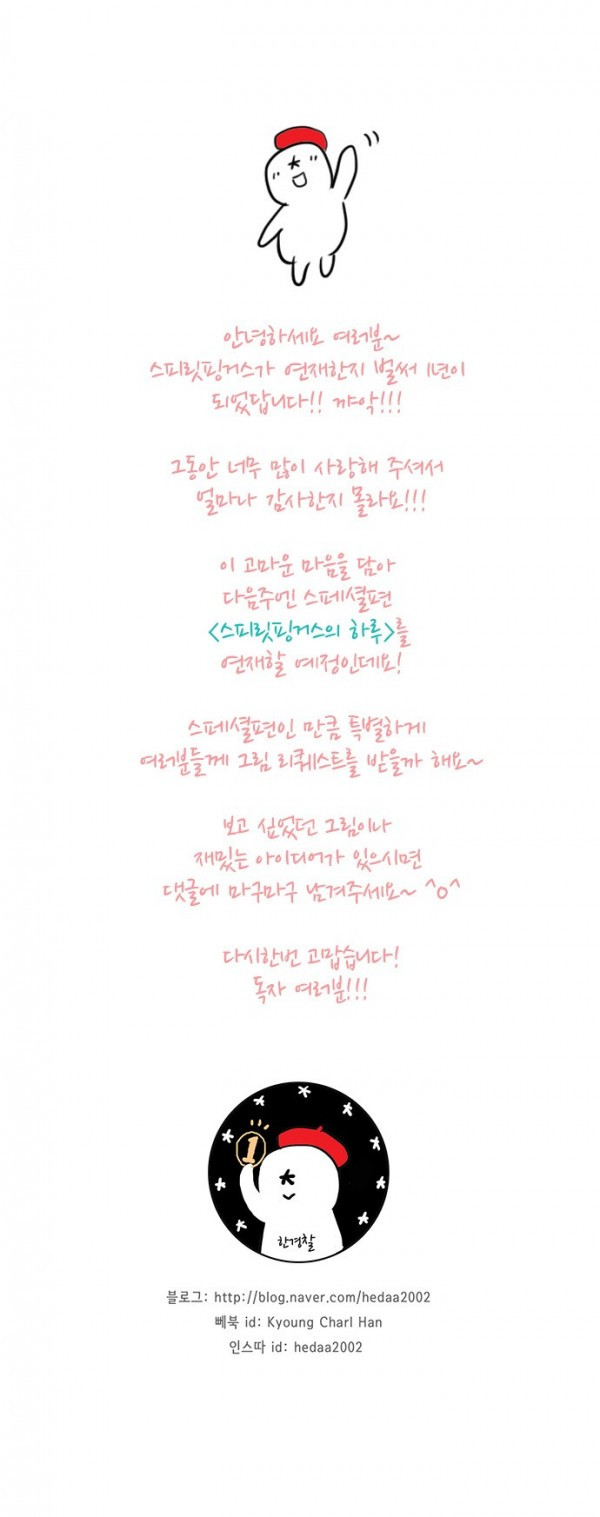 안녕하세요 여러분~
스피릿핑거스가 연재한지 벌써 1년이
되었답니다!! 꺄악!!!
그동안 너무 많이 사랑해 주셔서
얼마나 감사한지 몰라요!!!
이 고마운 마음을 담아
다음주엔 스페셜편
<스피릿핑거스의 하루>를
연재할 예정인데요!
스페셜편인 만큼 특별하게
여러분들께 그림 리퀘스트를 받을까 해요~
보고 싶었던 그림이나
재밌는 아이디어가 있으시면
댓글에 마구마구 남겨주세요~ ^o^
다시한번 고맙습니다!
독자 여러분!!!
1
한경찰
블로그: http://blog.naver.com/hedaa2002
뻬북 id: Kyoung Charl Han
인스따 id: hedaa2002